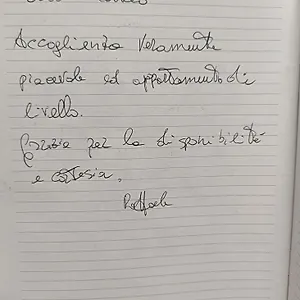 Accoglienza Veramente
piacevole ed appartamento di
livello.
Grazie per la disponibilità
e cortesia.